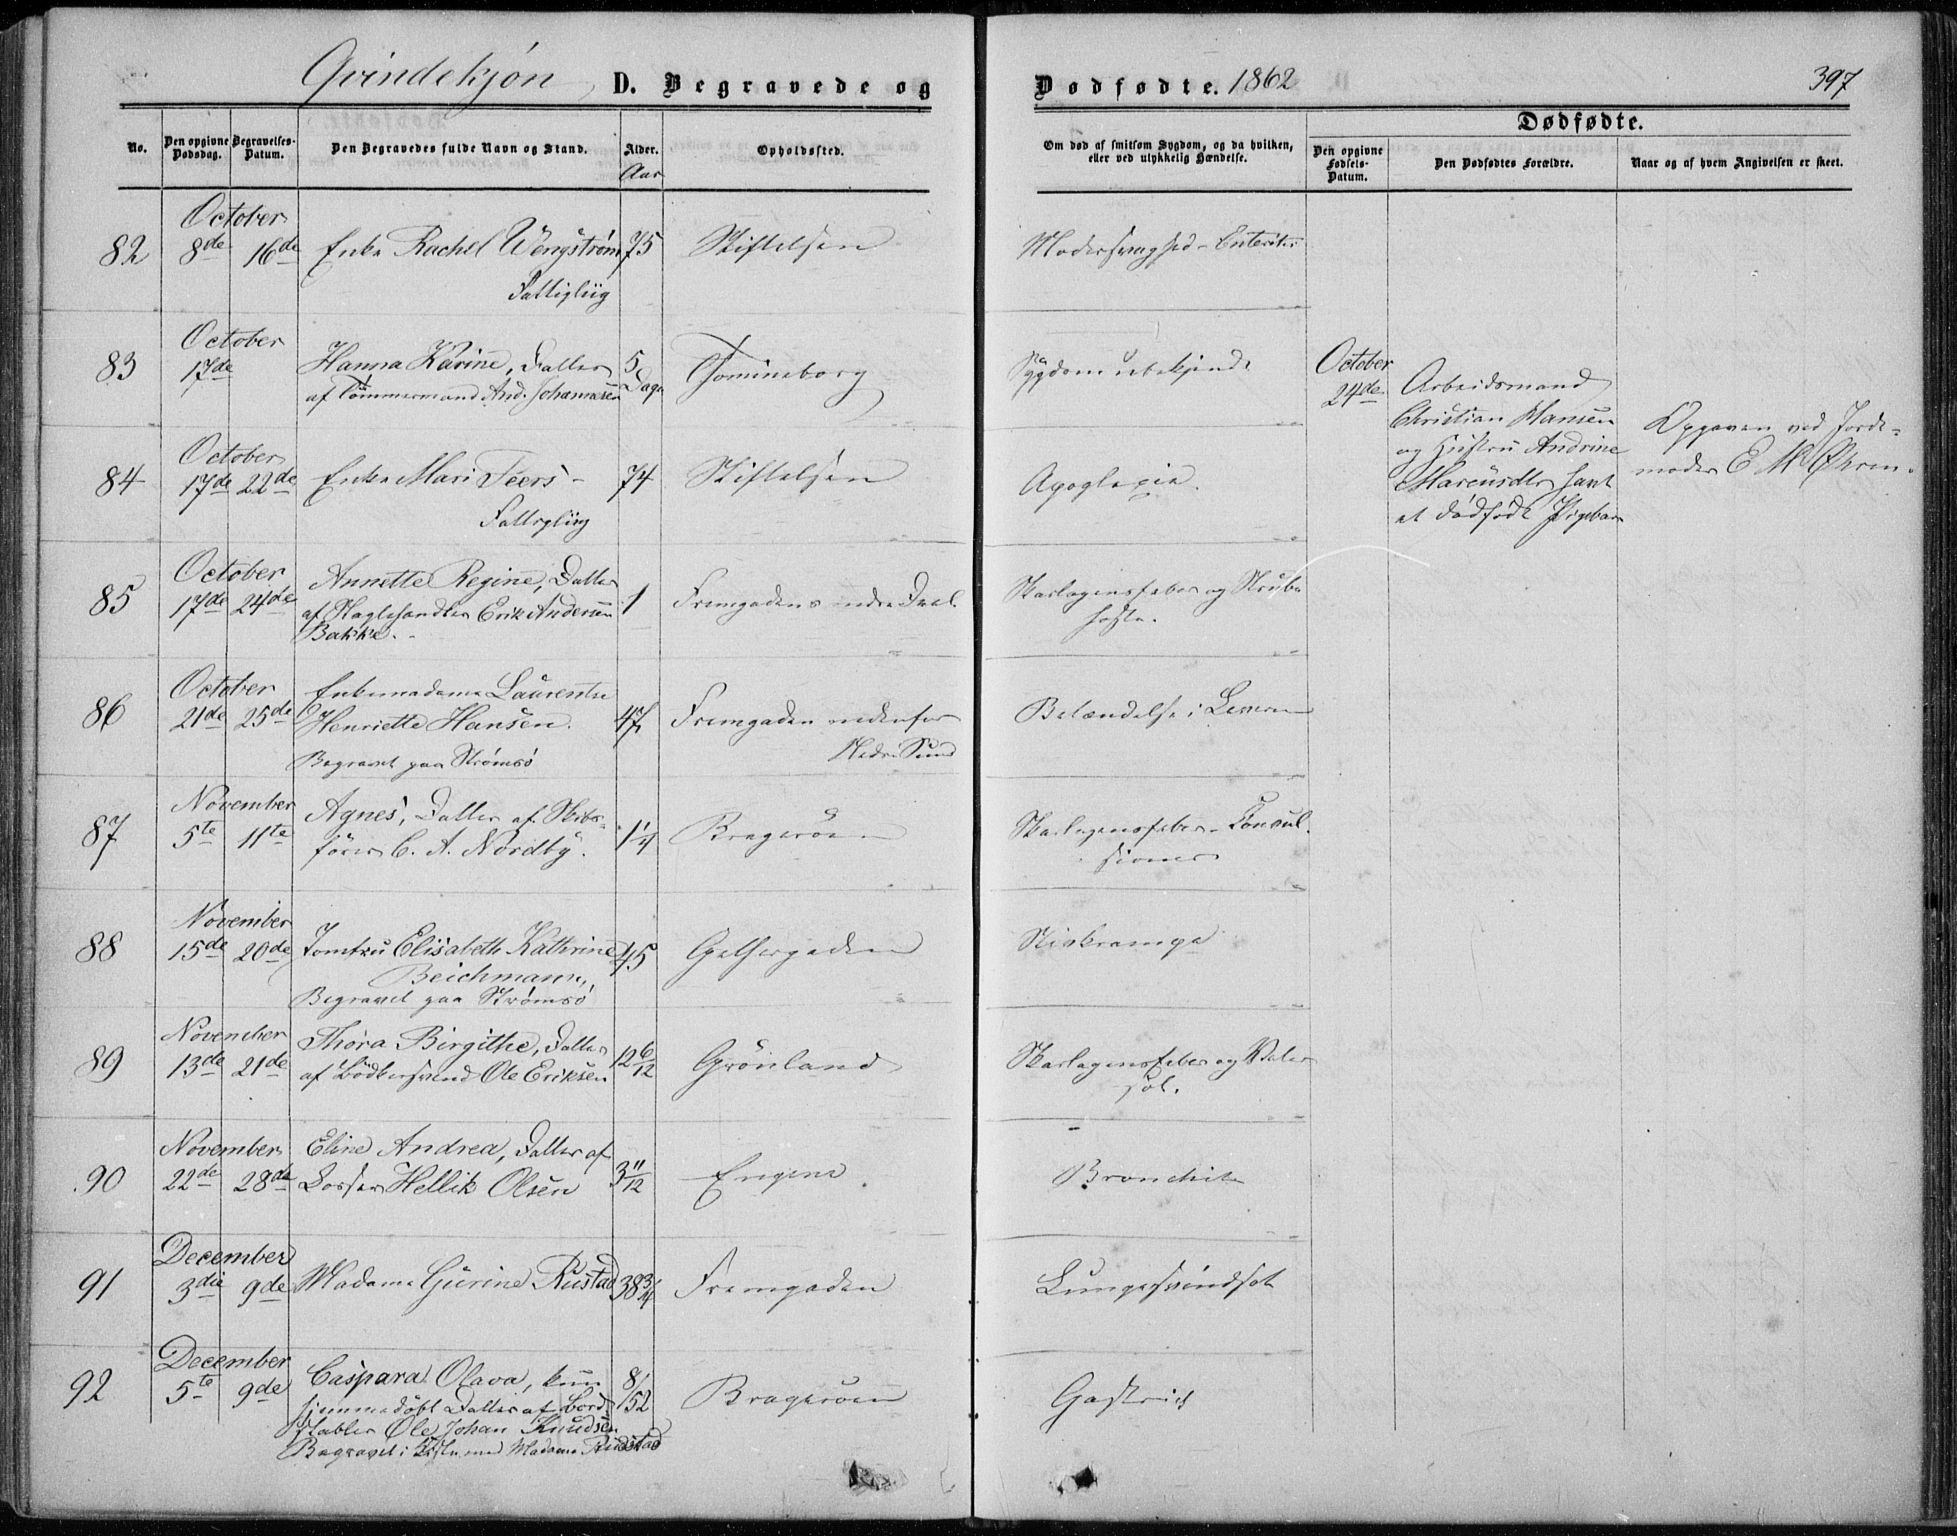 Qvindekjön D. Begravede og Dødfødte. 1862 397
No. Den opgivne Dødsdag. Begravelses-Datum. Den Begravedes fulde Navn og Stand. Alder. Opholdssted.
Aar
Om død af smitsom Sygdom, og da hvilken, eller ved ulykkelig Hændelse. Dødfødte.
Den opgivne Fødsels-Datum. Den Dødfødtes Forældre. Naar og af hvem Angivelsen er skeet.
October
82 8de 16de Enke Rachel Wengstrøm 75 Stiftelsen Alderssvaghed - Enteritis
Fattigliig
October
83 17de Hanna Karine, Datter 5 Tomineborg Sygdom ubekjendt
af Tömmermand And. Johannesen Dage
October
84 17de 22de Enke Mari Feers 74 Stiftelsen Apoplexia.
Fattigliig
October
85 17de 24de Annette Regine, Datter 1 Fremgadens nedre Deel. Skarlagensfeber og Strube
af Erik Andersen hoste.
Bakke.
October
86 21de 25de Enkemadame Laurentse 47 Fremgaden nedenfor Betændelse i Leveren
Henriette Hansen. Nedre Sund
Begravet paa Strømsö
November
87 5te 11te Agnes, Datter af Skibs- 1¼ Bragerøen Skarlagensfeber - Convul-
förer C. A. Nordby. sioner
November
88 15de 20de Jomfru Elisabeth Kathrine 45 Gjethergaden
Beichmann,
Begravet paa Strømsö
November
89 13de 21de Thora Birgithe, Datter 12 6/12 Grönland Skarlagensfeber og Vater
af Bödkersvend Ole Eriksen sot.
November
90 22de 28de Eline Andrea, Datter af 3 11/12 Engene Bronchit
Losser Hellik Olsen
December
91 3die 9de Madame Gurine Rustad 38¾ Fremgaden Lungesvindsot
December
92 5te 9de Caspara Olava, kun 8/52 Bragerøen Gastrisk
hjemmedöbt Datter af Bord
stabler Ole Johan Knudsen
Begravet i Kiste med Madame Rudstad
October
24de Arbeidsmand
Christian Hansen
og Hustru Andrine
Mareusdtr havt
et dödfödt Pigebarn
Opgaven ved Jorde-
moder E M Öhren.